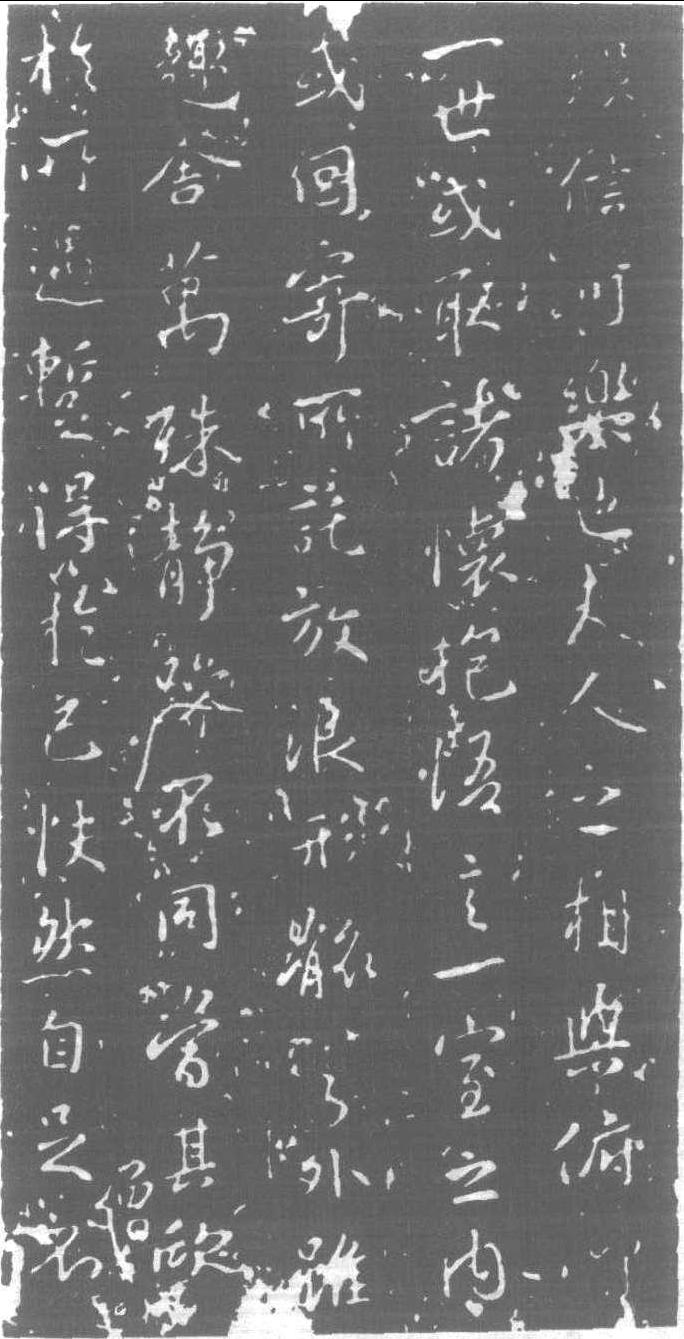 娛信可樂也夫人之相與俯仰
一世或取諸懷抱悟言一室之內
或因寄所託放浪形骸之外雖
趣舍萬殊靜躁不同當其欣
曾
於所遇暫得於己怏然自足不